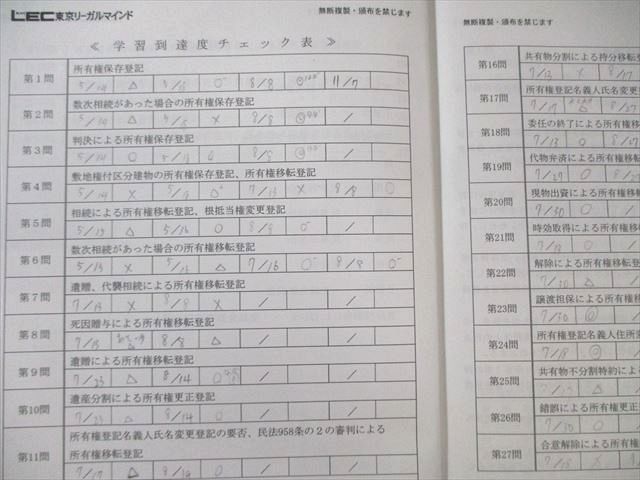 LEC東京リーガルマインド
無断複製・頒布を禁じます
≪ 学習到達度チェック表 ≫
第1問 所有権保存登記
5/14 △ 8/8 11/7
第2問 数次相続があった場合の所有権保存登記
△ × 8/8 /
第3問 判決による所有権保存登記
5/14 ○ 5/13 8/8 /
第4問 敷地権付区分建物の所有権保存登記、所有権移転登記
5/14 × 5/13 △ 7/13 × 8/8 ○
第5問 相続による所有権移転登記、根抵当権変更登記
5/13 △ 5/16 ○ 8/8 ○ /
第6問 数次相続があった場合の所有権移転登記
5/13 × 5/13 △ 7/16 ○ 8/8 ○
第7問 遺贈、代襲相続による所有権移転登記
7/13 × 8/8 × / /
第8問 死因贈与による所有権移転登記
7/13 8/8 △ / /
第9問 遺贈による所有権移転登記
7/23 △ 8/14 ○ / /
第10問 遺産分割による所有権更正登記
7/23 △ 8/14 ○ / /
第11問 所有権登記名義人氏名変更登記の要否、民法958条の2の審判による
所有権移転登記
7/17 △ 8/14 ○ / /
無断複製・頒布を禁じます
第16問 共有物分割による持分移転登
7/13 × 8/17
第17問 所有権登記名義人氏名変更
7/17 △ 8/27
第18問 委任の終了による所有権移
7/13 ○ 8/27
第19問 代物弁済による所有権移転
7/27 ○ 8/27
第20問 現物出資による所有権移
7/30 ○ /
第21問 時効取得による所有権移
7/18 ○ /
第22問 解除による所有権移転
7/30 △ /
第23問 譲渡担保による所有権
7/30 ◎ /
第24問 所有権登記名義人住所
7/18 ◎ /
第25問 共有物不分割特約によ
△ /
第26問 錯誤による所有権更正
7/30 ○ /
第27問 合意解除による所有権
7/18 ×